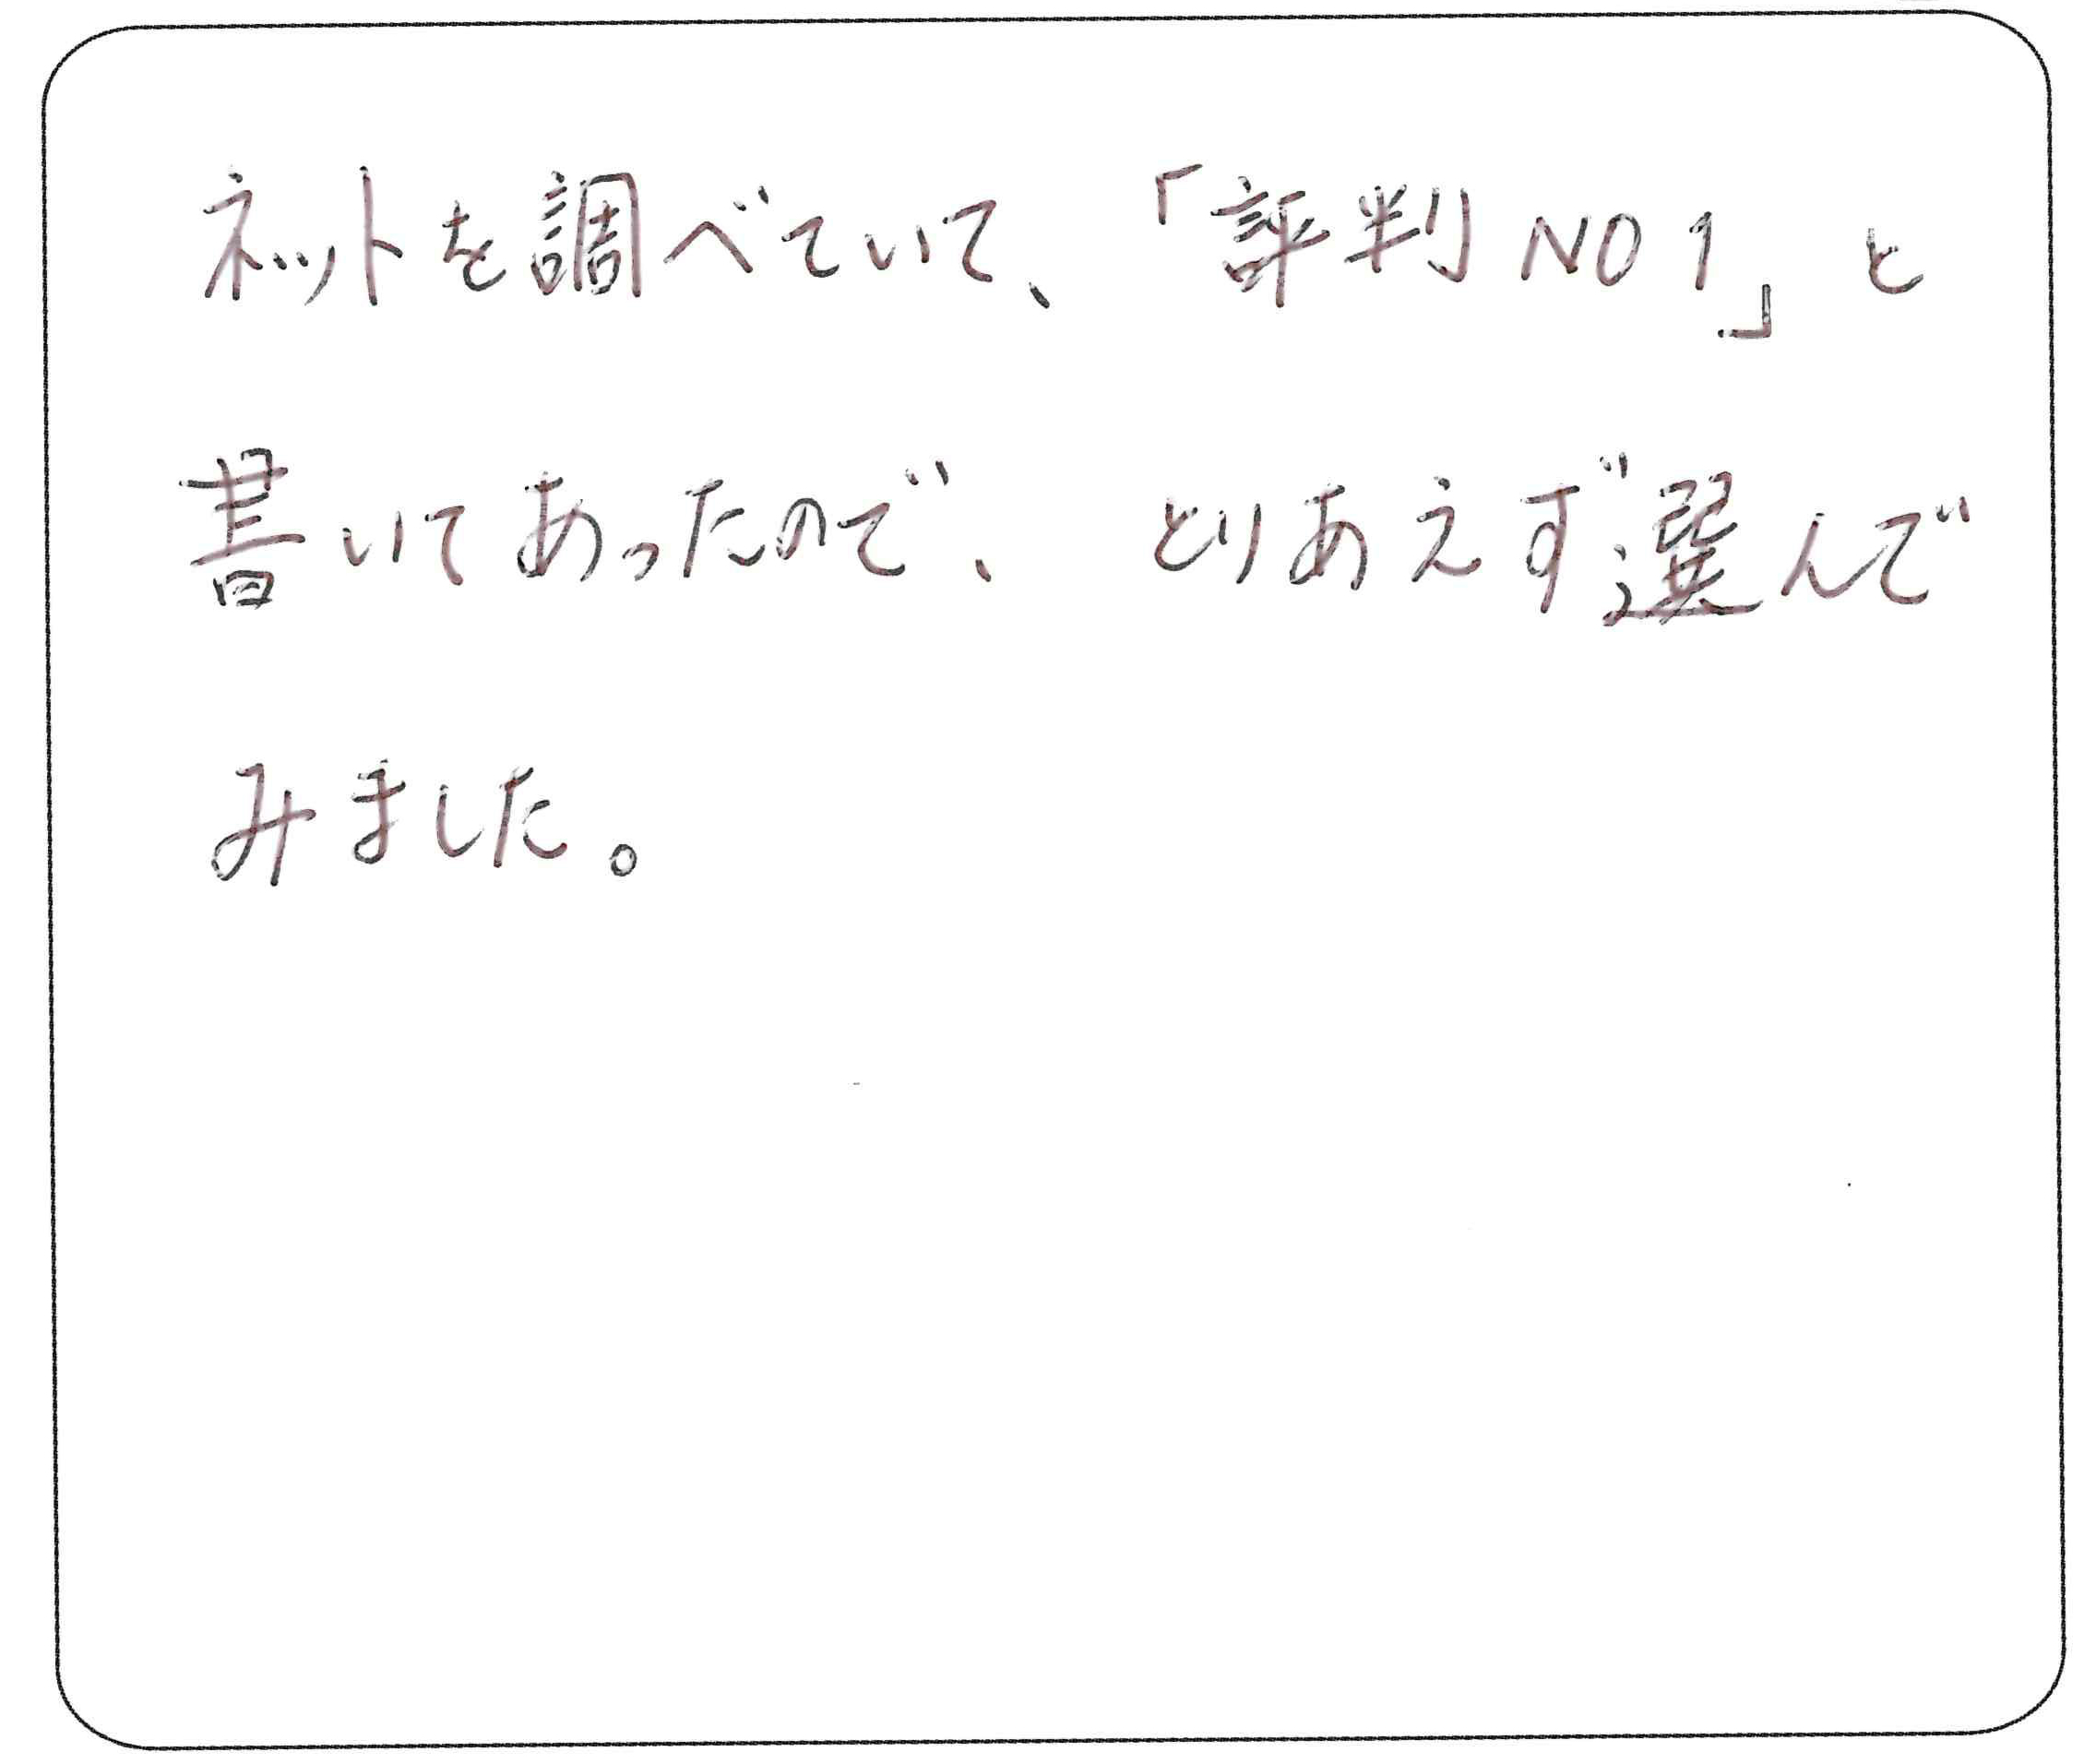 ネットを調べていて、「評判NO1」と
書いてあったので、とりあえず選んで
みました。